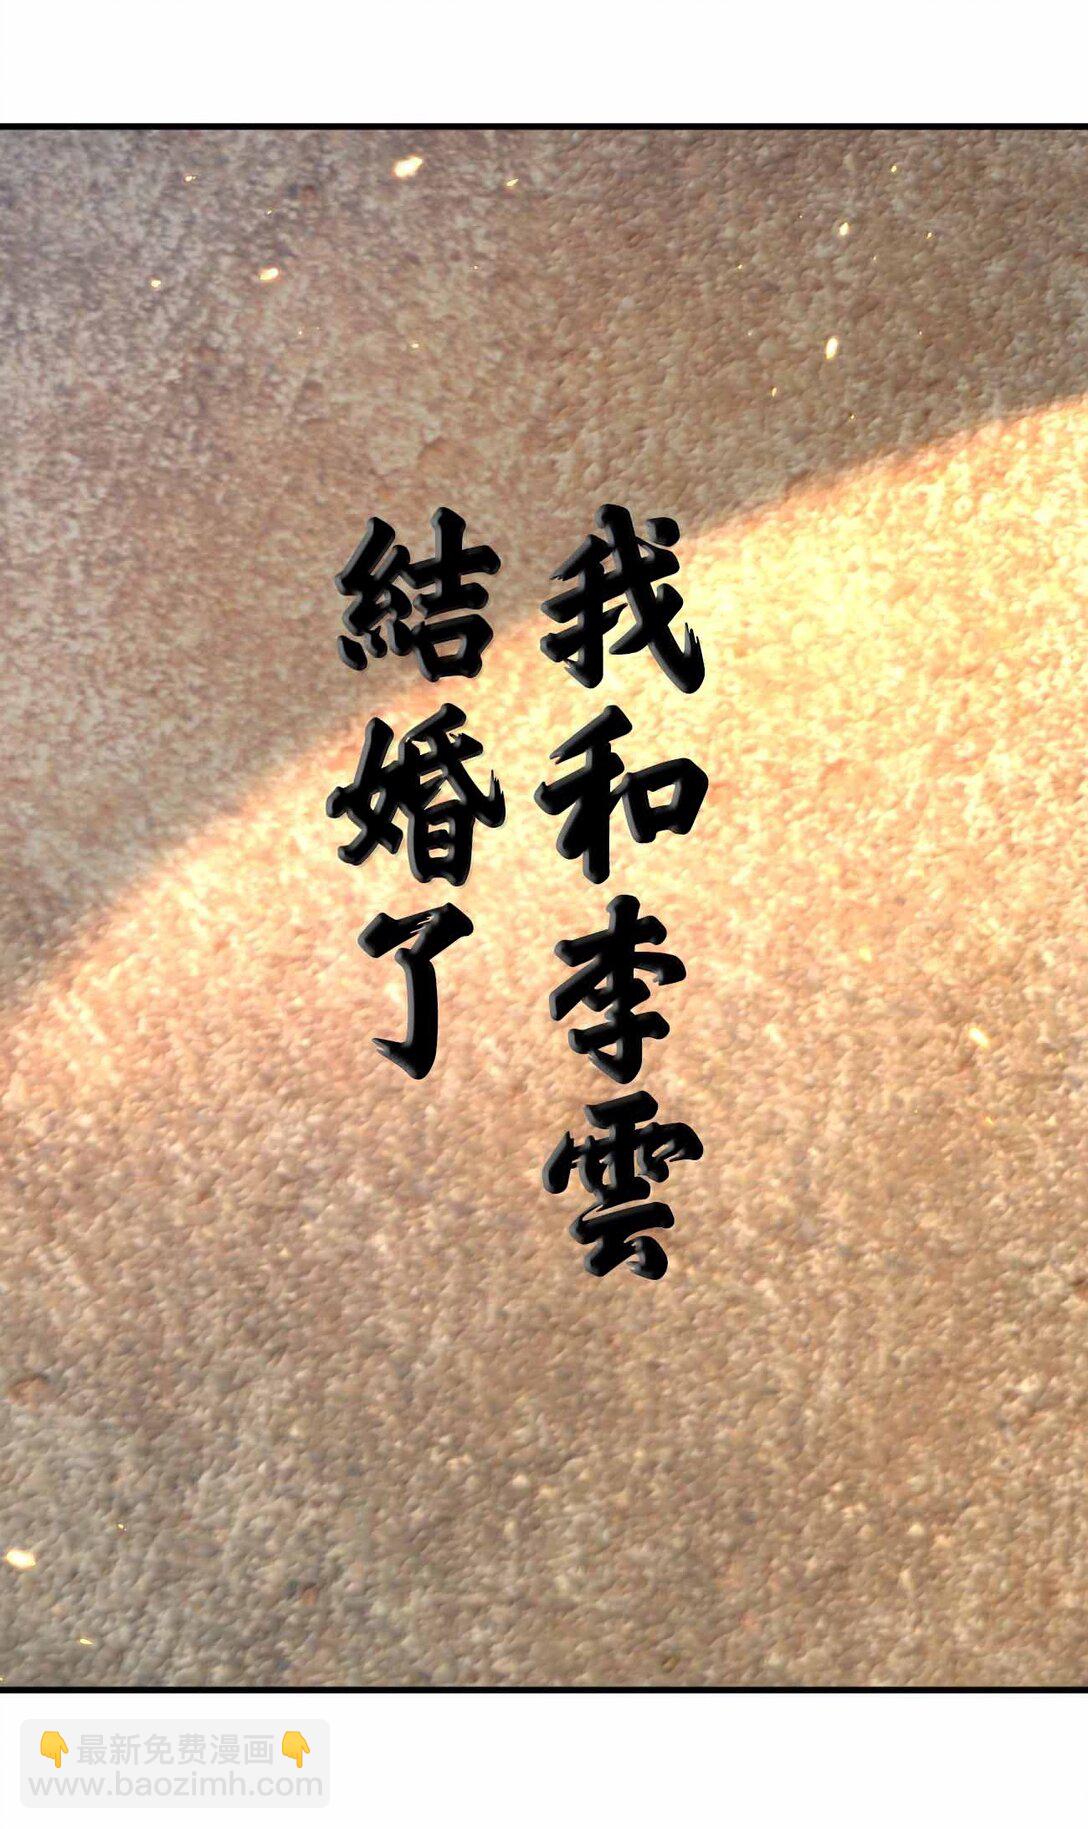 我和李雲
結婚了
👇最新免费漫画👇
www.baozimh.com